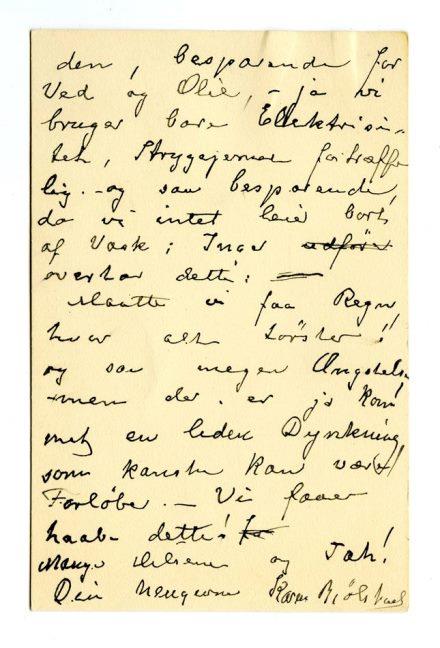 den, besparende for
Ved og Olie, – ja vi
bruger bare Elektrisi-
tet, Strygejernet fortræffe
lig. – og saa besparende,
da vi intet leier bort
af Vask; Inga
overtar dette:
Maatte vi faa Regn,
hvor alt tørster!
og saa megen Ængstelse
men der er jo kom
met en liden Dynkning
som kanske kan være
Forløber. – Vi faaer
haabe dette!
Mange Hilsener og Tak!
Din hengivne Karen